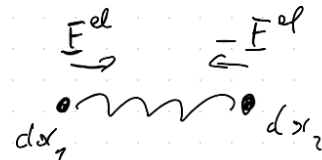 F^el - F^el
dx₁ dx₂